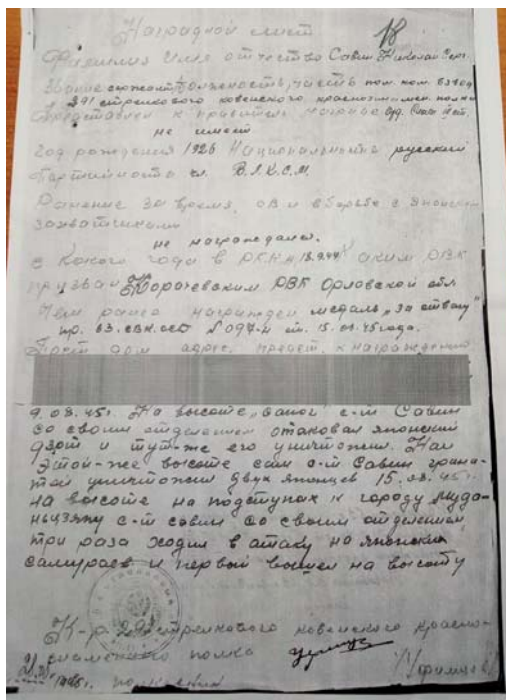 Наградной лист
18
Фамилия имя отчество Савин Николай Серг.
Звание сержант должность, часть пом. ком. взвод
291 стрелкового ковенского краснознамен. полка
Представлен к правител. награде орд. Слав. II ст.
не имеет
Год рождения 1926 Национальность русский
Партийность чл. В.Л.К.С.М.
Ранение за время, ОВ и в борьбе с японским
захватчиками
не награждался.
С какого года в РККА 18.9.44 Каким РВК
призван Корочевским РВК Орловской обл
Чем ранее награжден медаль "За отвагу"
пр. 63. СВК. ОСО №097-н от. 15.04.45 года.
Пост. дом. адрес, предст. к награждению
9.08.45г. На высоте с-т Савин
со своим отделением атаковал японский
дзот и тут-же его уничтожил. На
этой-же высоте сам с-т Савин грана-
той уничтожил двух японцев 15.08.45г
на высоте на подступах к городу Муда-
ньцзяну с-т Савин со своим отделением
три раза ходил в атаку на японских
самураев и первый вышел на высоту
К-р 291 стрелкового ковенского красно-
знаменного полка
1945г. полковник